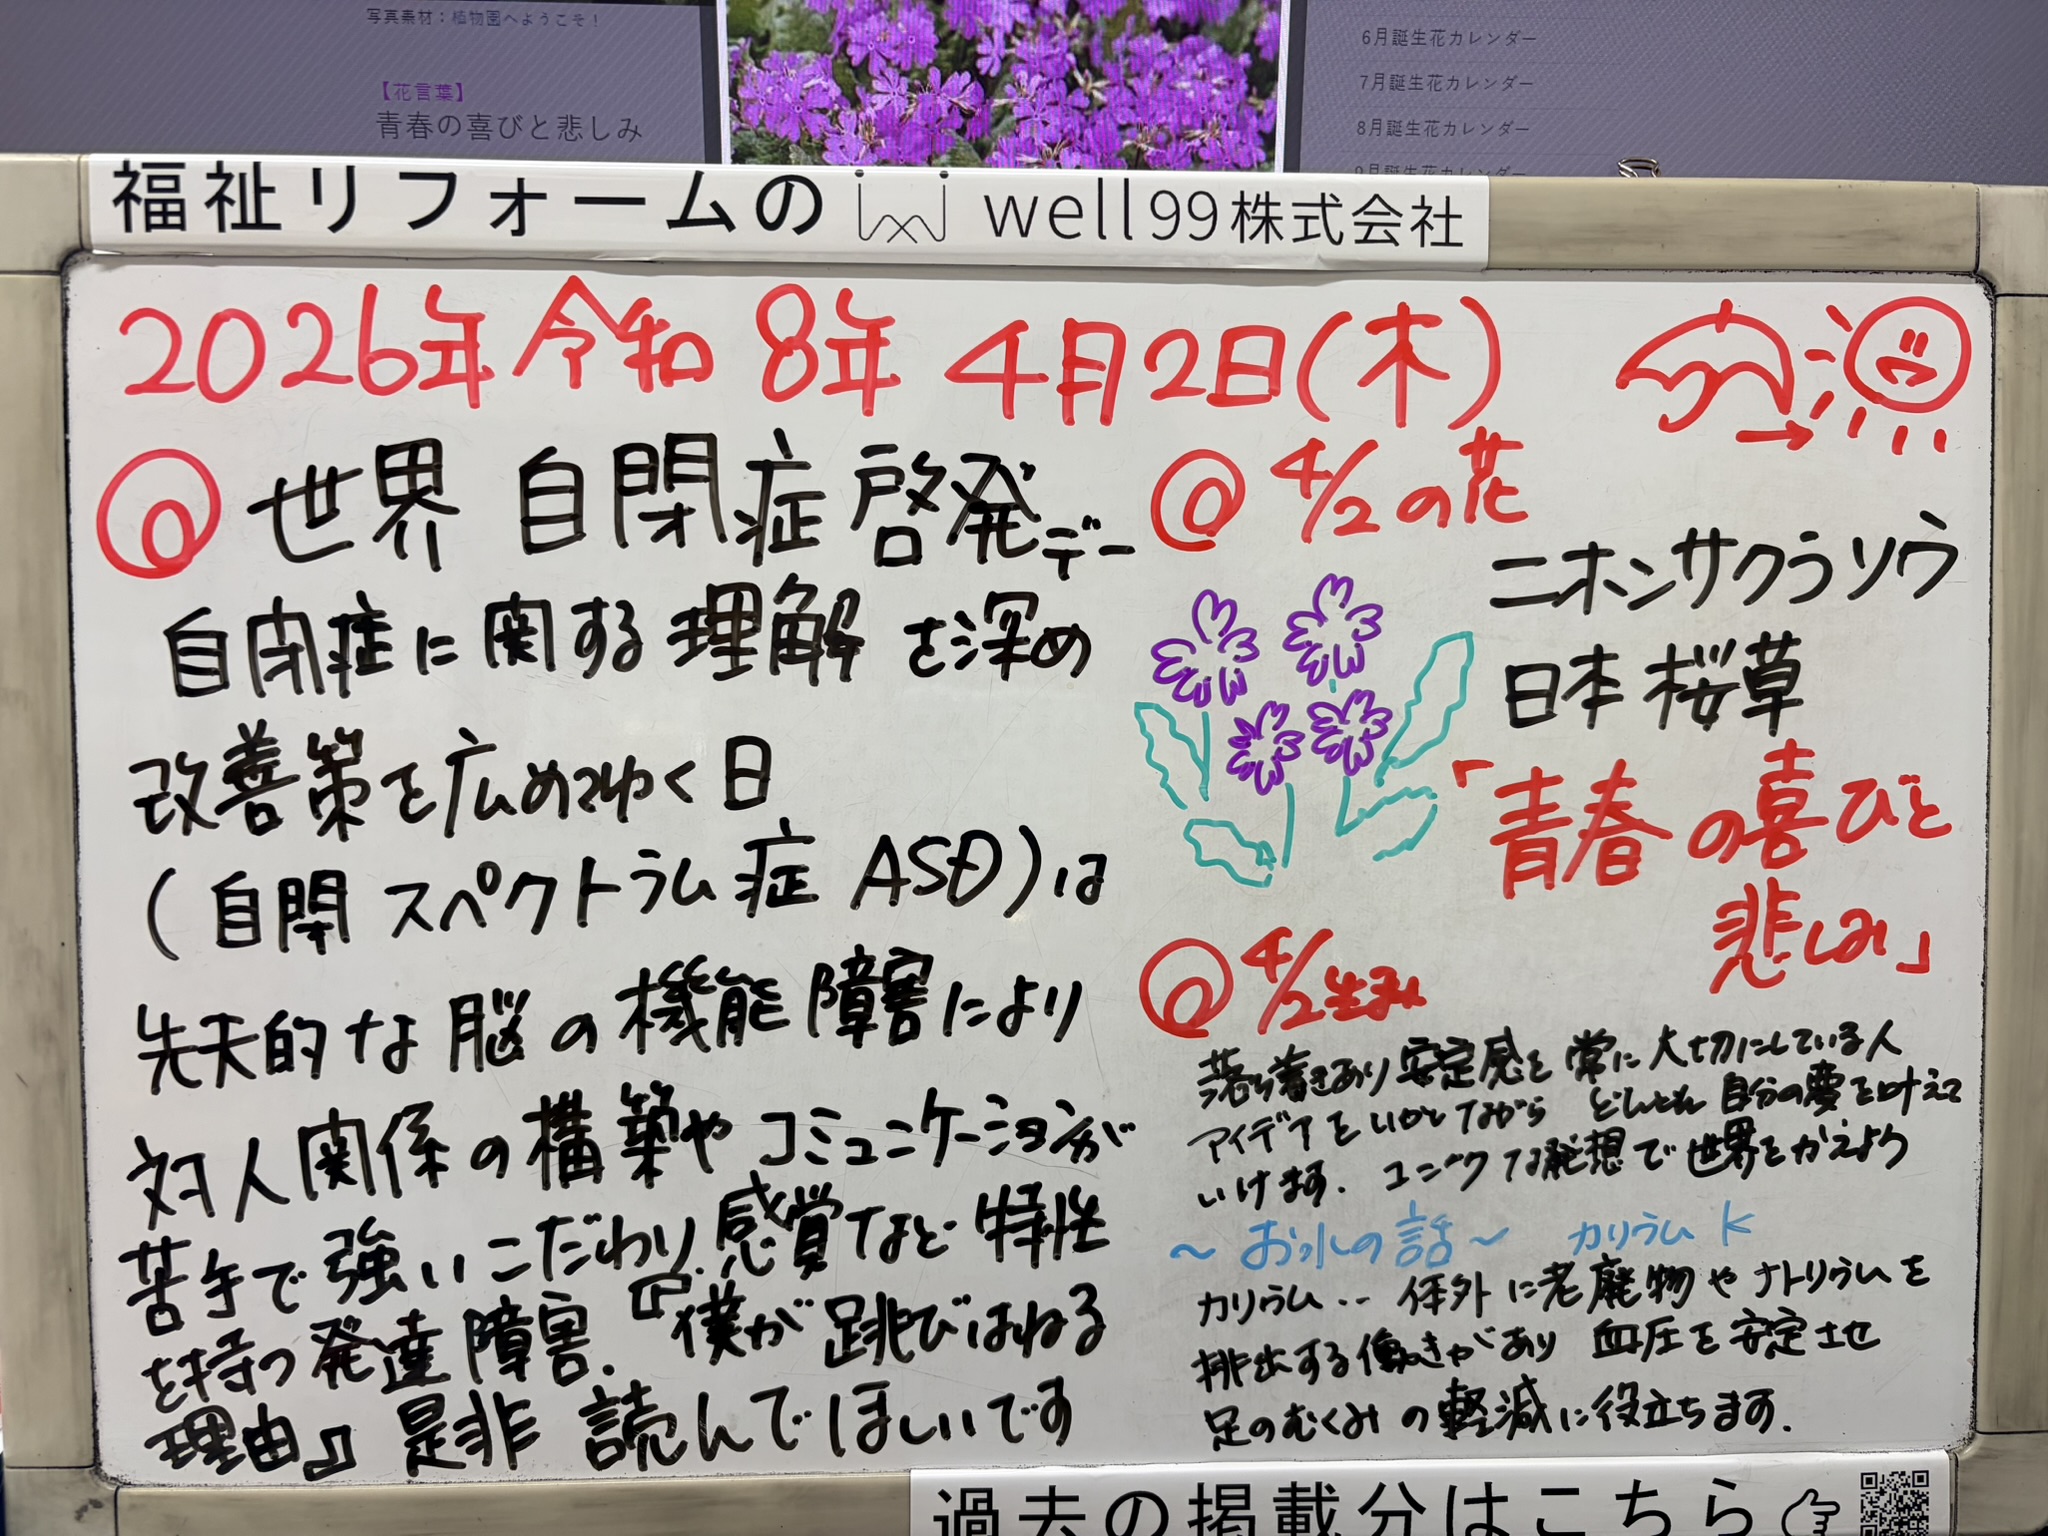 写真素材：植物園へようこそ！
【花言葉】
青春の喜びと悲しみ
6月誕生花カレンダー
7月誕生花カレンダー
8月誕生花カレンダー
9月誕生花カレンダー
福祉リフォームの well99株式会社
2026年令和8年4月2日(木)
世界自閉症啓発デー
自閉症に関する理解を深め
改善策を広めてゆく日
(自閉スペクトラム症ASD)は
先天的な脳の機能障害により
対人関係の構築やコミュニケーションが
苦手で強いこだわり、感覚など特性
を持つ発達障害.『僕が跳びはねる
理由』是非読んでほしいです
@4/2の花
ニホンサクラソウ
日本桜草
「青春の喜びと
悲しみ」
4/2生まれ
落ち着きあり安定感を常に大切にしている人
アイデアをいかしながらどんどん自分の夢を叶えて
いけます.ユニークな発想で世界をかえよう
～お水の話～ カリウムK
カリウム‥体外に老廃物やナトリウムを
排出する働きがあり血圧を安定させ
足のむくみの軽減に役立ちます.
過去の掲載分はこちら